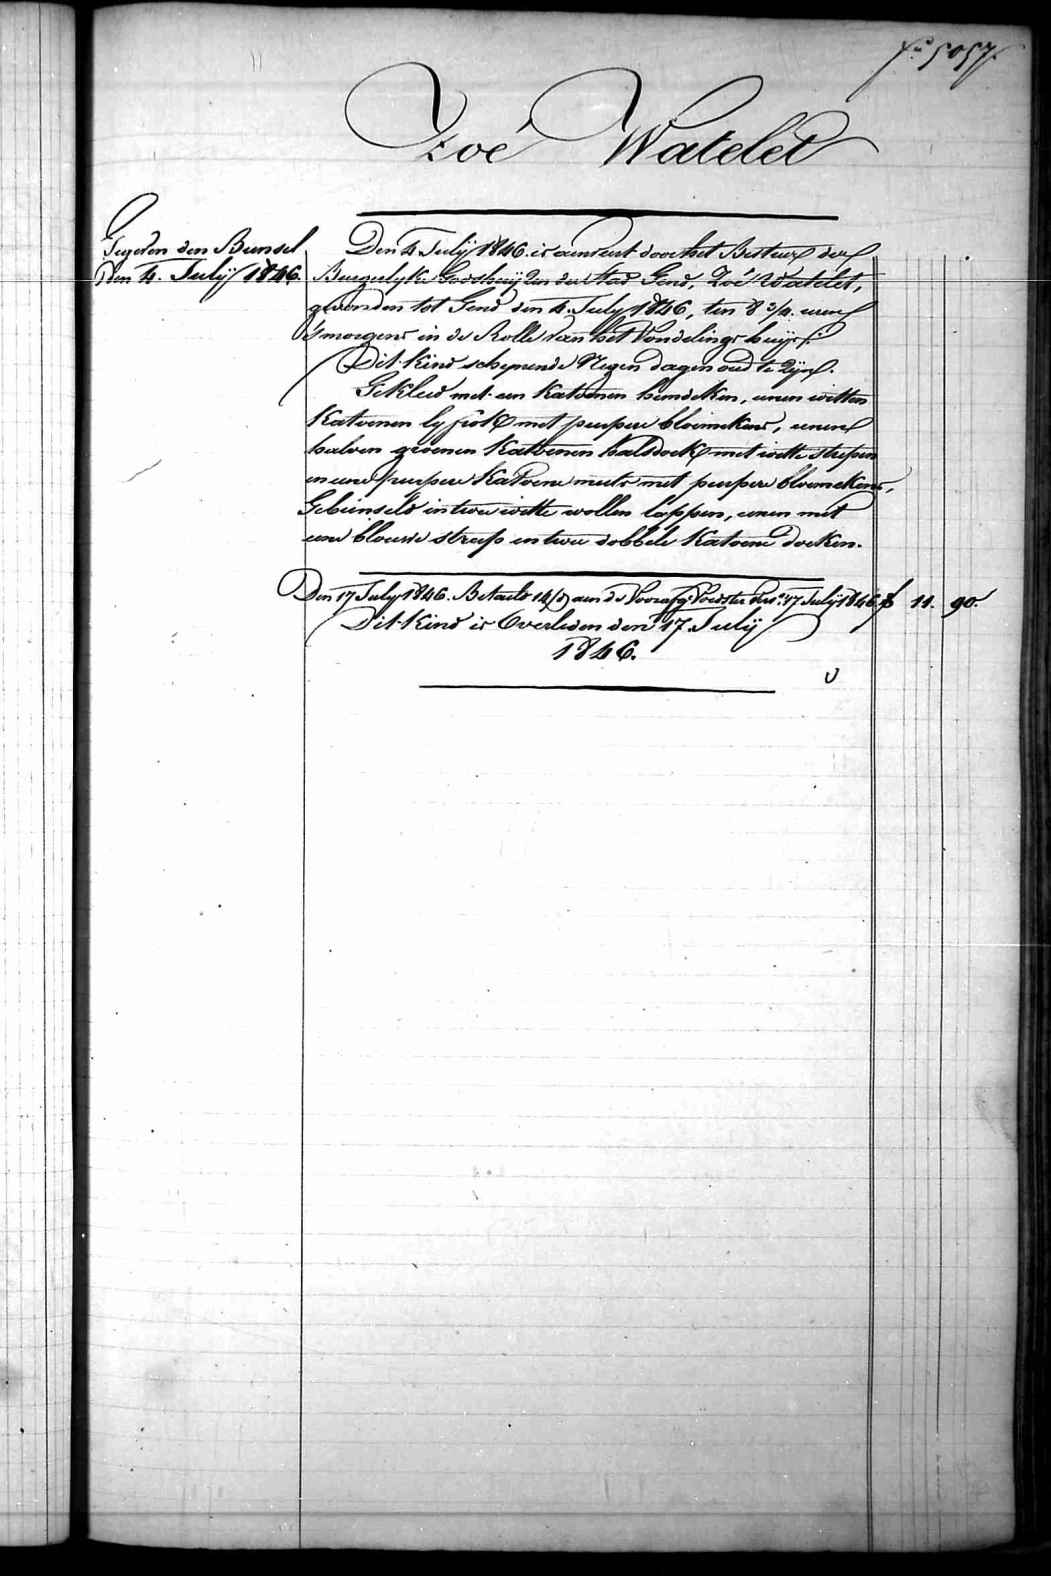 f.º 5057.
Zoé Watelet
Gegeven den Bunsel
den 4. Julÿ 1846.
Den 4 Julÿ 1846. is aenveert door het Bestuer der
Burgerlyke Godshuÿzen der stad Gend, Zoé Watelet,
gevonden tot Gend den 4. July 1846, ten 8 3/4. uren
's morgens in de Rolle van het Vondelings huÿs.
Dit Kind schynende Negen dagen oud te Zÿn.
Gekleed met een Katoenen hemdeken, eenen witten
Katoenen lyfrok met purpere bloemekens, eenen
halven groenen Katoenen halsdoek met witte strepen
en eene purpere Katoene muts met purpere bloemekens,
Gebunseld in twee witte wollen lappen, eenen met
eene blauwe streep en twee dobbele Katoene doeken.
Den 17 July 1846. Betaeld 14/d aen de Voedster 17 Julÿ 1846. f 11. 90.
Dit Kind is Overleden den 17. Julÿ
1846.